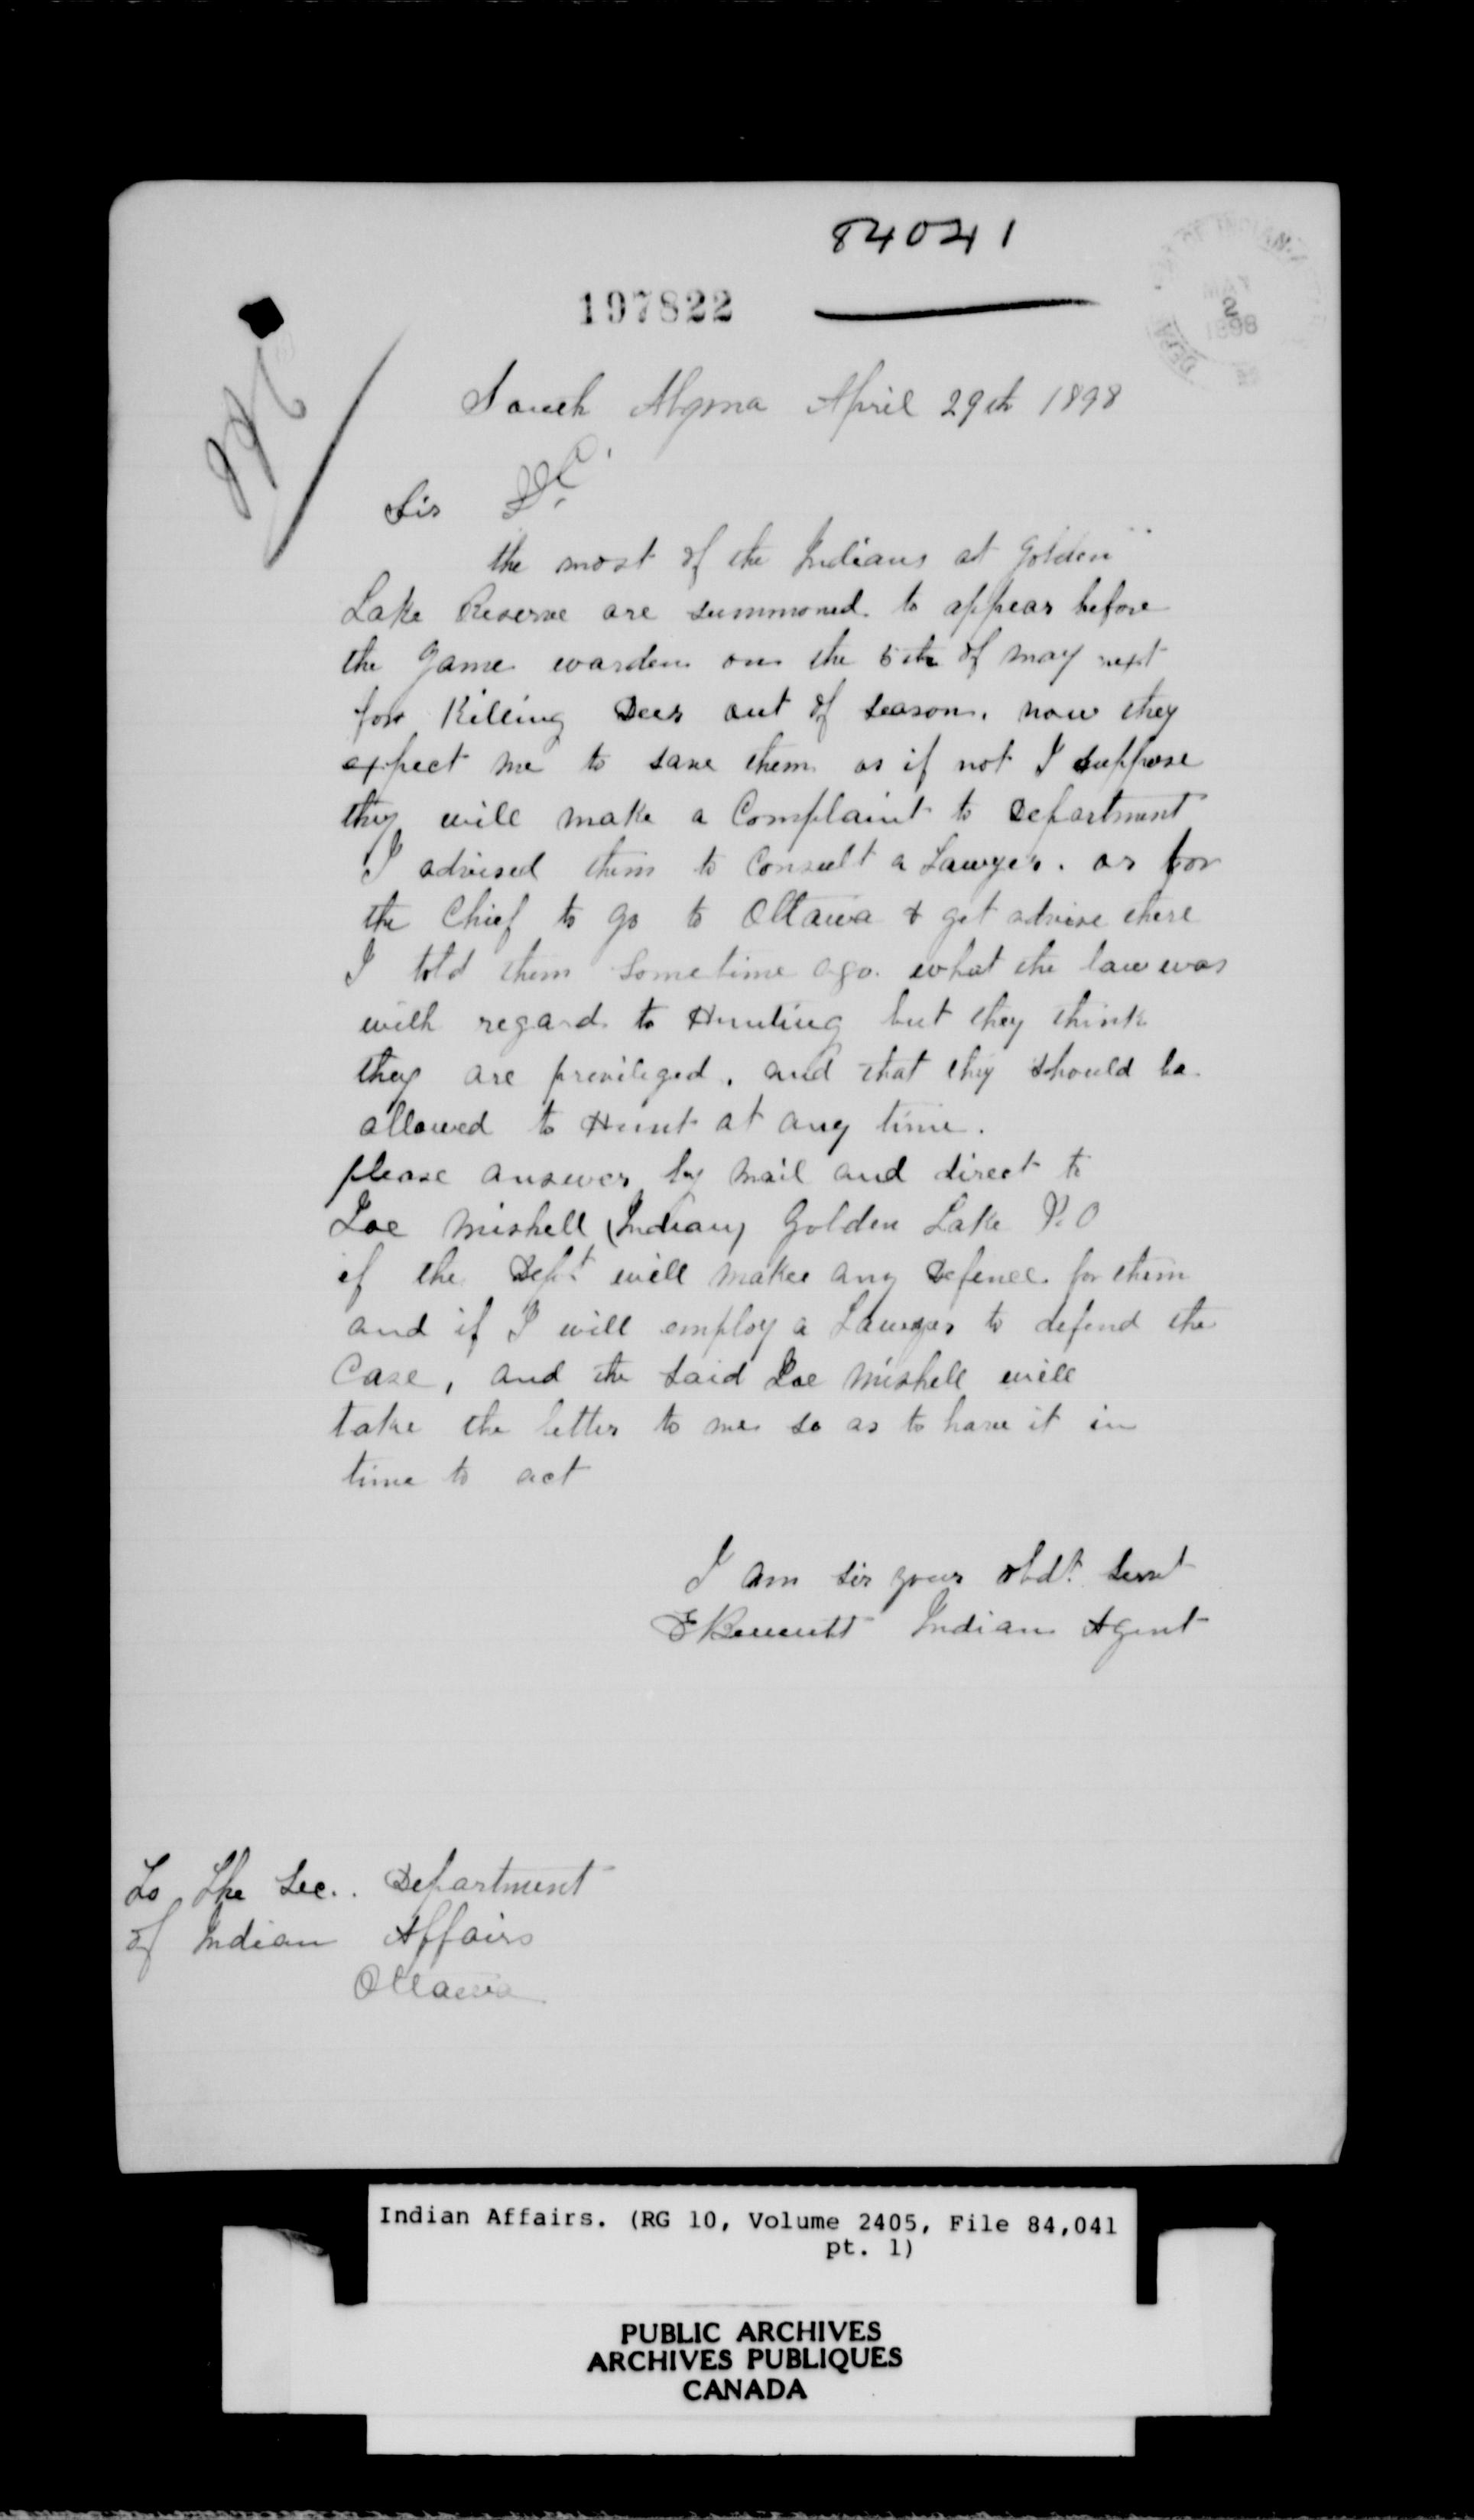 84041
197822
MAY
2
1898
South Algona April 29th 1898
Sir
the most of the Indians at Golden
Lake Reserve are summoned to appear before
the Game warden on the 5th of may next
for Killing Deer out of season. now they
expect me to save them as if not I suppose
they will make a Complaint to Department
I advised them to Consult a Lawyer. or for
the Chief to go to Ottawa & get advise there
I told them sometime ago what the law was
with regard to Hunting but they think
they are privileged, and that they should be
allowed to Hunt at any time.
please answer by mail and direct to
Joe Mishell (Indian) Golden Lake P.O
if the Dept will make any Defence for them
and if I will employ a Lawyer to defend the
Case, and the said Joe Mishell will
take the letter to me so as to have it in
time to act
I am sir your obdt. servt
E Bennett Indian Agent
To The Sec. Department
of Indian Affairs
Ottawa
Indian Affairs. (RG 10, Volume 2405, File 84,041
pt. 1)
PUBLIC ARCHIVES
ARCHIVES PUBLIQUES
CANADA